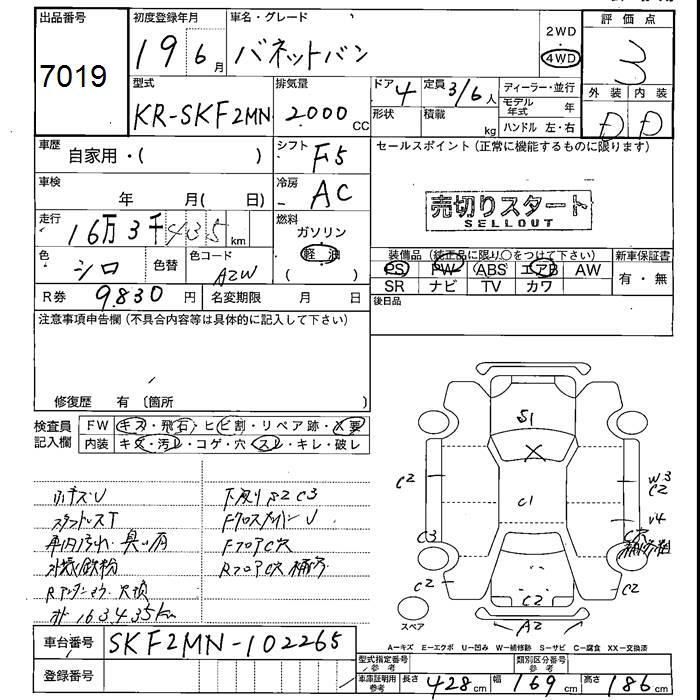 出品番号
7019
初度登録年月
19 6月
車名・グレード
バネットバン
2WD
4WD
評価点
3
外装 内装
D D
型式
KR-SKF2MN
排気量
2000cc
ドア 4
形状
定員 3/6人
積載 kg
ディーラー・並行
モデル年式 年
ハンドル 左・右
車歴
自家用・( )
シフト
F5
車検
年 月( 日)
冷房
AC
走行
16万3千435km
燃料
ガソリン
軽油
( )
色
シロ
色替
色コード
A2W
R券 9830円
名変期限 月 日
セールスポイント(正常に機能するものに限ります)
売切りスタート
SELLOUT
装備品(純正品に限り○をつけて下さい)
PS PW ABS エアB AW
SR ナビ TV カワ
新車保証書
有・無
後日品
注意事項申告欄(不具合内容等は具体的に記入して下さい)
修復歴 有〔箇所 〕
検査員記入欄
FW キズ・飛石・ヒビ割・リペア跡・X要
内装 キズ・汚レ・コゲ・穴・スレ・キレ・破レ
スタッドレスT
車内汚れ・臭い有
外装鉄粉
163435km
下廻りS2C3
FクロスメンバーU
FフロアC穴
RフロアC穴 補修
S1
C1
C2
C3
C2
W3
C2
C2
C2
A2
スペア
A－キズ E－エクボ U－凹み W－補修跡 S－サビ C－腐食 XX－交換済
車台番号
SKF2MN-102265
登録番号
型式指定番号 参考
類別区分番号 参考
車庫証明用 参考
長さ 428cm
幅 169cm
高さ 186cm